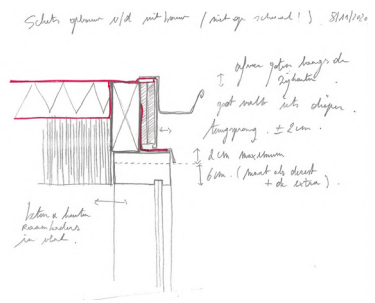 Schets opbouw v/d uitbouw (niet op schaal!) 8/11/2020
afvoer goten langs de
zijkanten
goot valt iets dieper.
terugsprong. ± 2 cm.
2 cm maximum
6 cm. (maat als eerst
+ de extra).
beton & houten
in vlak.